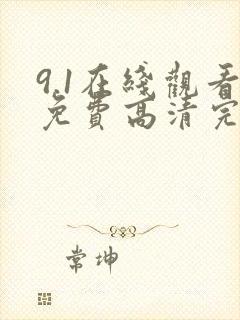 9.1在綫觀看
免費高清完
常坤